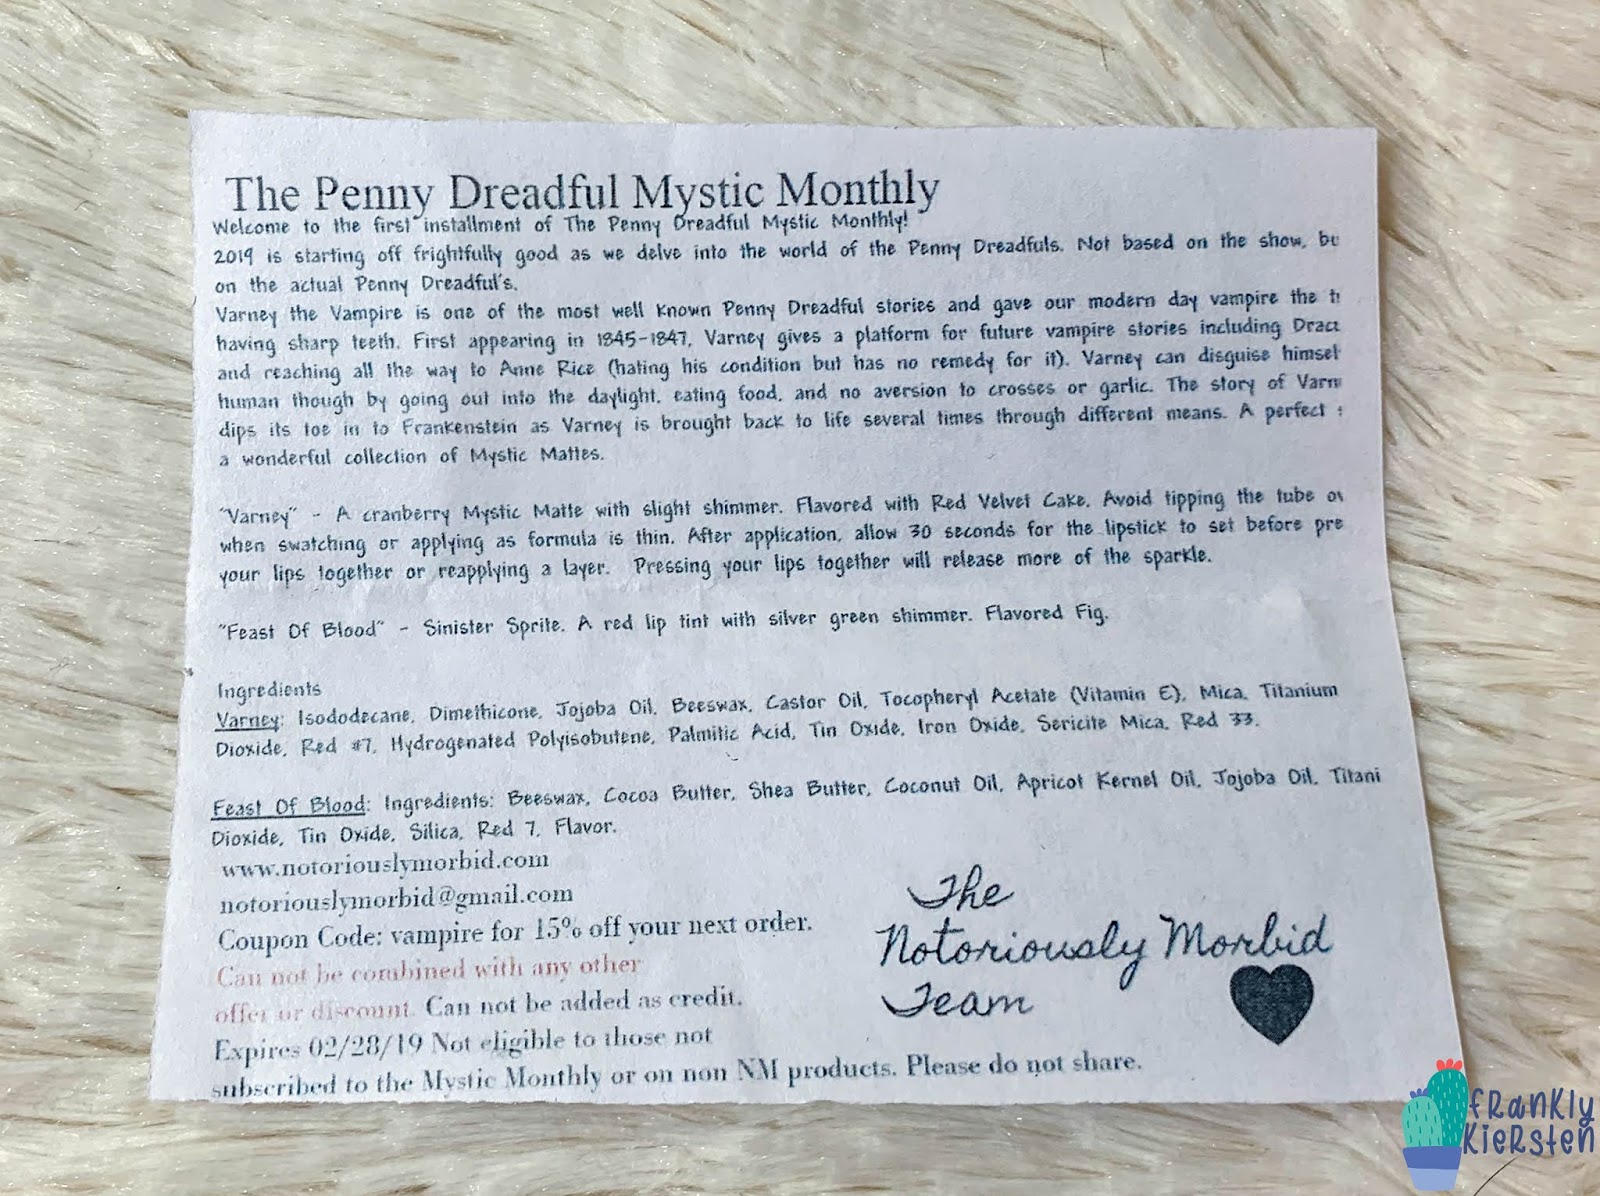 The Penny Dreadful Mystic Monthly
Welcome to the first installment of The Penny Dreadful Mystic Monthly!
2019 is starting off frightfully good as we delve into the world of the Penny Dreadfuls. Not based on the show,
on the actual Penny Dreadful's.
Varney the Vampire is one of the most well known Penny Dreadful stories and gave our modern day vampire the
having sharp teeth. First appearing in 1845-1847, Varney gives a platform for future vampire stories including
and reaching all the way to Anne Rice (hating his condition but has no remedy for it). Varney can disguise
human though by going out into the daylight, eating food, and no aversion to crosses or garlic. The story of
dips its toe in to Frankenstein as Varney is brought back to life several times through different means. A perfect
a wonderful collection of Mystic Mattes.
"Varney" - A cranberry Mystic Matte with slight shimmer. Flavored with Red Velvet Cake. Avoid tipping the tube
when swatching or applying as formula is thin. After application, allow 30 seconds for the lipstick to set before
your lips together or reapplying a layer. Pressing your lips together will release more of the sparkle.
"Feast Of Blood" - Sinister Sprite. A red lip tint with silver green shimmer. Flavored Fig.
Ingredients
Varney: Isododecane, Dimethicone, Jojoba Oil, Beeswax, Castor Oil, Tocopheryl Acetate (Vitamin E), Mica, Titanium
Dioxide, Red #7, Hydrogenated Polyisobutene, Palmitic Acid, Tin Oxide, Iron Oxide, Sericite Mica, Red 33.
Feast Of Blood: Ingredients: Beeswax, Cocoa Butter, Shea Butter, Coconut Oil, Apricot Kernel Oil, Jojoba Oil, Titani
Dioxide, Tin Oxide, Silica, Red 7, Flavor.
www.notoriouslymorbid.com
notoriouslymorbid@gmail.com
Coupon Code: vampire for 15% off your next order.
Can not be combined with any other
offer or discount. Can not be added as credit.
Expires 02/28/19 Not eligible to those not
subscribed to the Mystic Monthly or on non NM products. Please do not share.
The
Notoriously Morbid
Team
FRANKLY
KIERSTEN